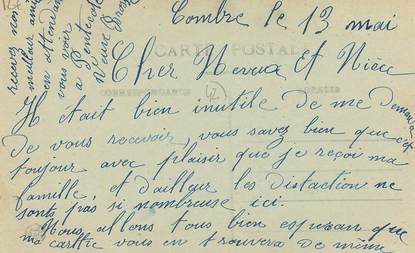 Combre le 13 mai
CARTE POSTALE
Cher Neveux et Nièce
CORRESPONDANCE
Il était bien inutile de me Deman
De vous recevoir, vous savez bien que c'est
toujour avec plaisir que je reçoi ma
famille, et d'ailleur les distaction ne
sonts pas si nombreuse ici.
Nous, allons tous bien esperan que
ma carttre vous en trouvera de même
recevez nos
meilleur ami
en attendan
vous voir
a Pentecote